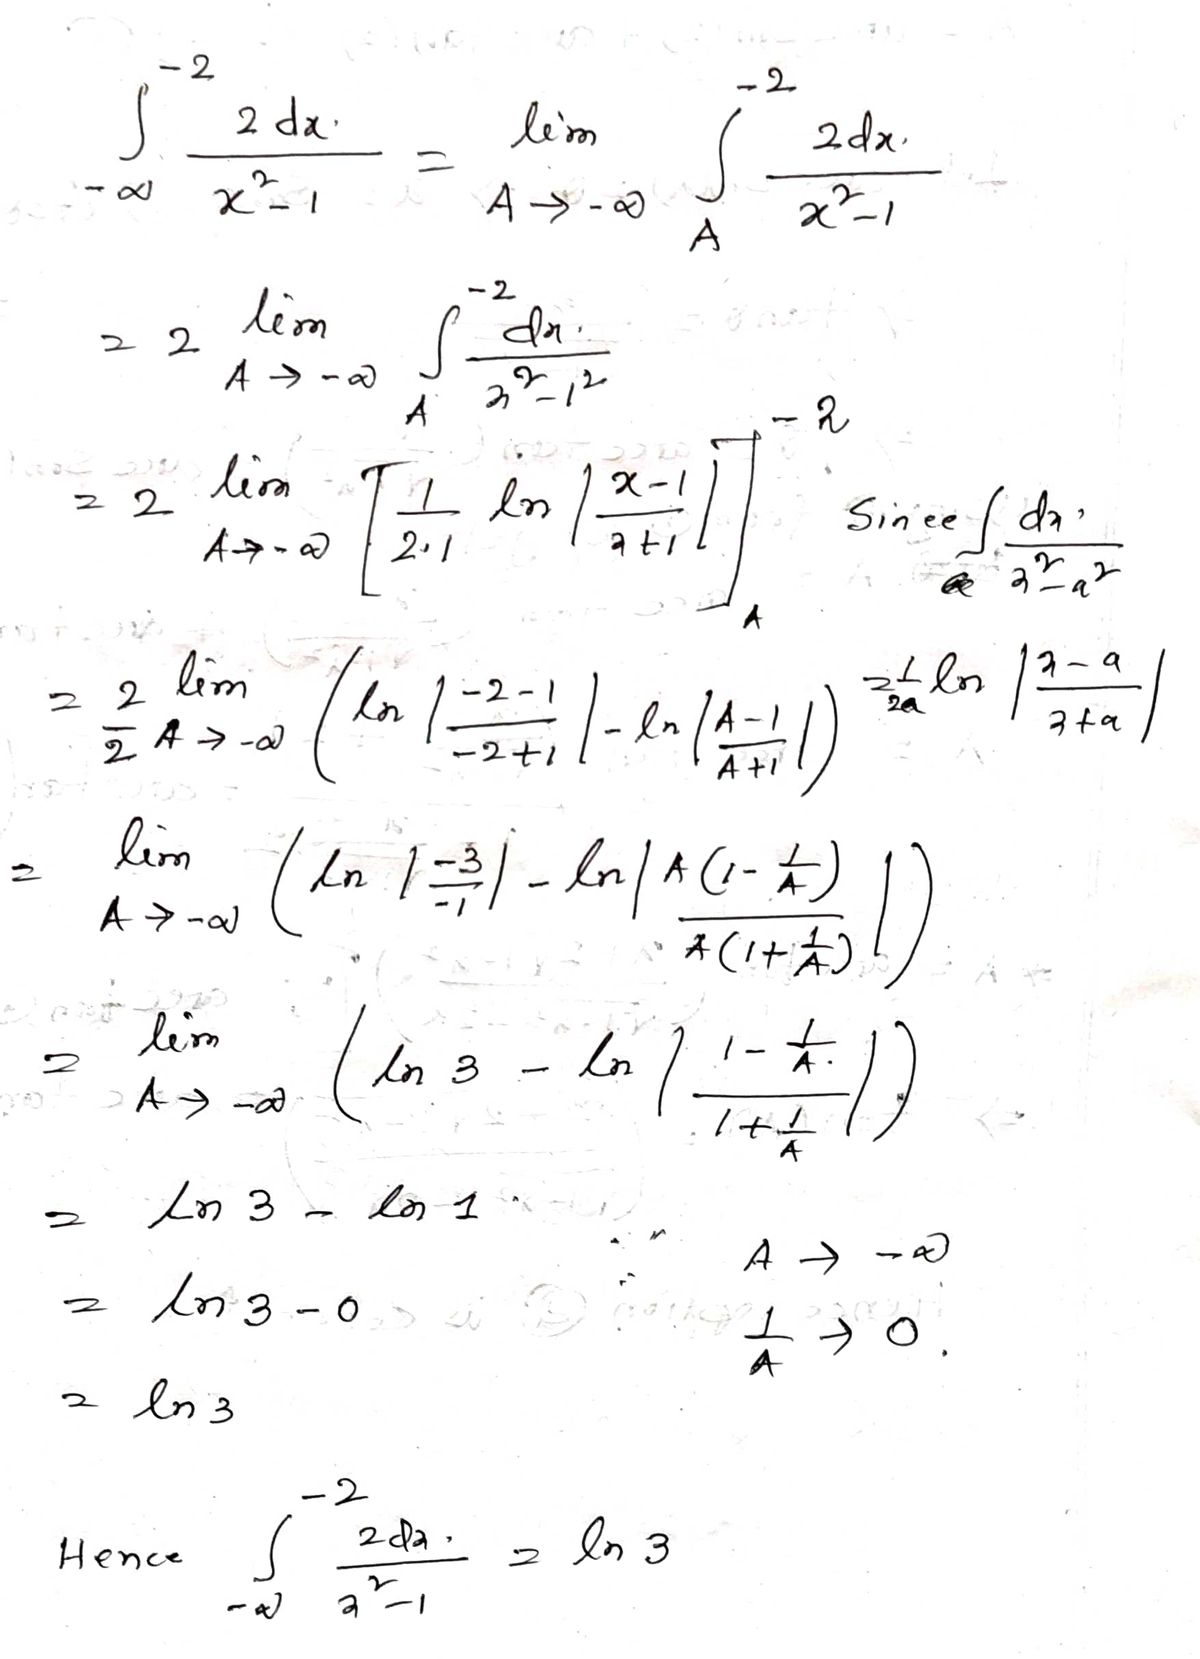 ∫_{-∞}^{-2} 2 dx. / (x² - 1) = lim_{A → -∞} ∫_{A}^{-2} 2 dx. / (x² - 1)
= 2 lim_{A → -∞} ∫_{A}^{-2} dx. / (x² - 1²)
= 2 lim_{A → -∞} [ 1/(2·1) ln |(x-1)/(x+1)| ]_{A}^{-2} Since ∫ dx. / (x² - a²)
= 2/2 lim_{A → -∞} ( ln |(-2-1)/(-2+1)| - ln |(A-1)/(A+1)| ) = 1/2a ln |(x-a)/(x+a)|
= lim_{A → -∞} ( ln |-3/-1| - ln | A(1 - 1/A) / A(1 + 1/A) | )
= lim_{A → -∞} ( ln 3 - ln | (1 - 1/A.) / (1 + 1/A) | )
= ln 3 - ln 1 ∵ A → -∞
= ln 3 - 0 1/A → 0.
= ln 3
Hence ∫_{-∞}^{-2} 2 dx. / (x² - 1) = ln 3